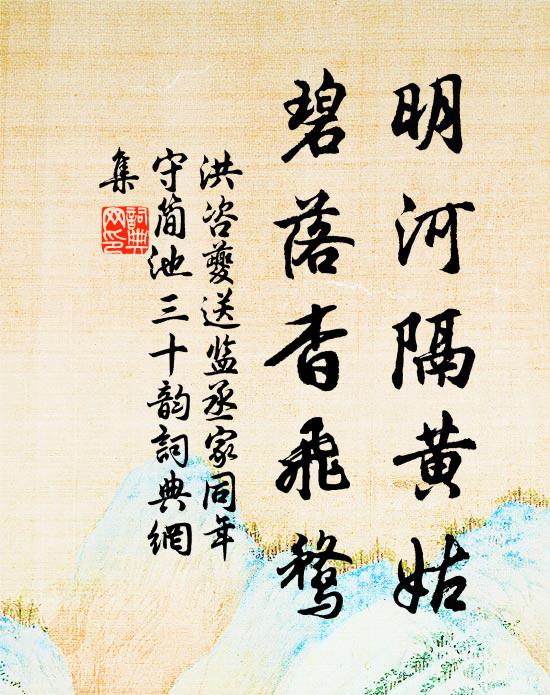 明河隔黄姑
碧落杳飛鶩
洪咨夔送监丞家同年
守简池三十韵詞典網
集
詞典
网印